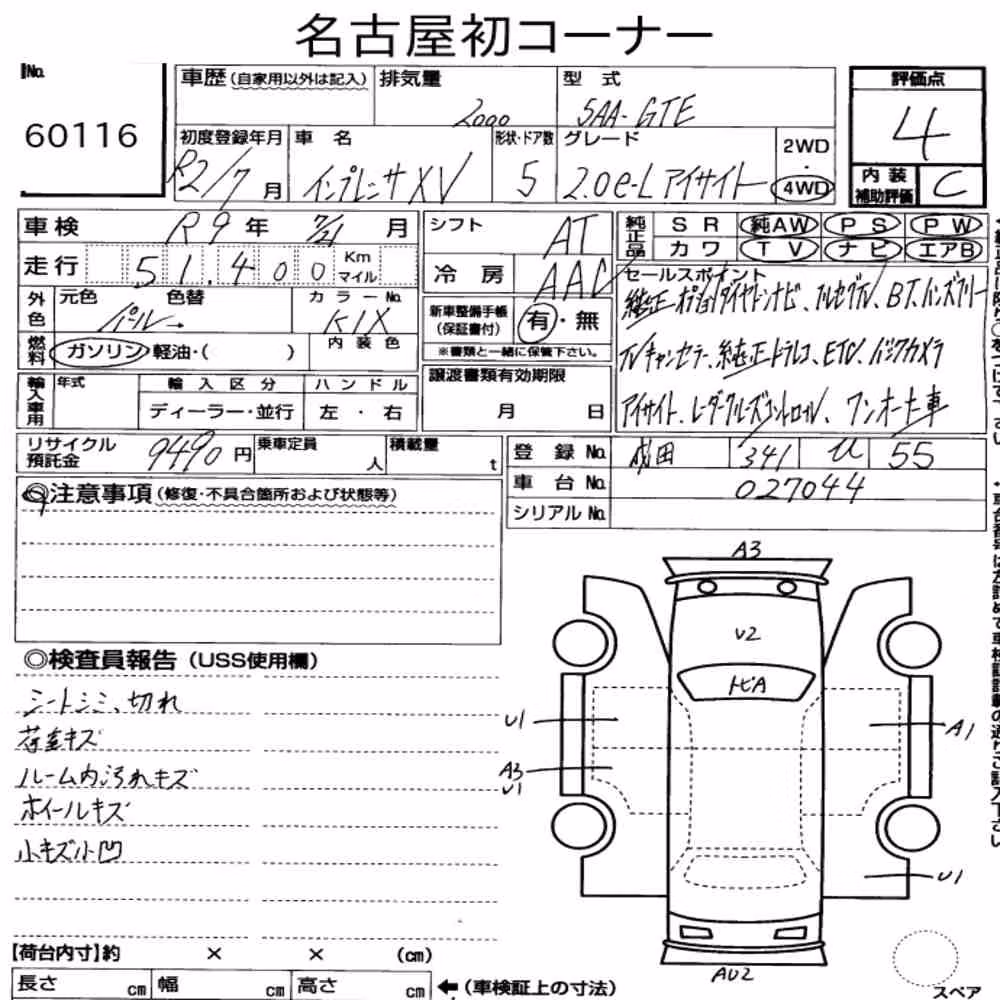 名古屋初コーナー
No.
60116
車歴(自家用以外は記入)
排気量
2000
型 式
5AA-GTE
評価点
4
内装
補助評価
C
初度登録年月
R2/7 月
車 名
インプレッサXV
形状・ドア数
5
グレード
2.0e-L アイサイト
2WD
・
4WD
車検
R9 年 7/21 月
走行
51,400
Km
マイル
外色
元色
パール→
色替
カラーNo.
K1X
燃料
ガソリン 軽油・( )
内装色
輸入車用
年式
輸入区分
ディーラー・並行
ハンドル
左 ・ 右
シフト
AT
冷房
AAC
新車整備手帳
(保証書付)
有・無
※書類と一緒に保管下さい。
譲渡書類有効期限
月 日
純正品
SR 純AW PS PW
カワ TV ナビ エアB
セールスポイント
純正 ダイヤトーンナビ、フルセグTV、BT、ハンズフリー
TVキャンセラー、純正ドラレコ、ETC、バックカメラ
アイサイト、レーダークルーズコントロール、ワンオーナー車
リサイクル
預託金
9490 円
乗車定員
人
積載量
t
登録No.
成田 341 55
車台No.
027044
シリアルNo.
◎注意事項(修復・不具合箇所および状態等)
◎検査員報告(USS使用欄)
シートシミ、切れ
荷室キズ
ルーム内汚れキズ
ホイールキズ
小キズ小凹
A3
U2
トビA
U1
A1
A3
U1
U1
AU2
スペア
【荷台内寸】約 × × (cm)
長さ cm
幅 cm
高さ cm
←(車検証上の寸法)